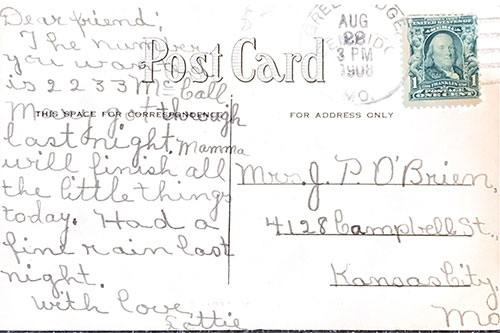 Dear friend:
The number
you want
is 2233 McCall
May got through
last night. Mamma
will finish all
the little things
today. Had a
fine rain last
night.
With love,
Lottie
Post Card
THIS SPACE FOR CORRESPONDENCE
FOR ADDRESS ONLY
AUG
28
3 PM
1908
MO.
1
Mrs. J. P. O'Brien,
4128 Campbell St.,
Kansas City,
Mo